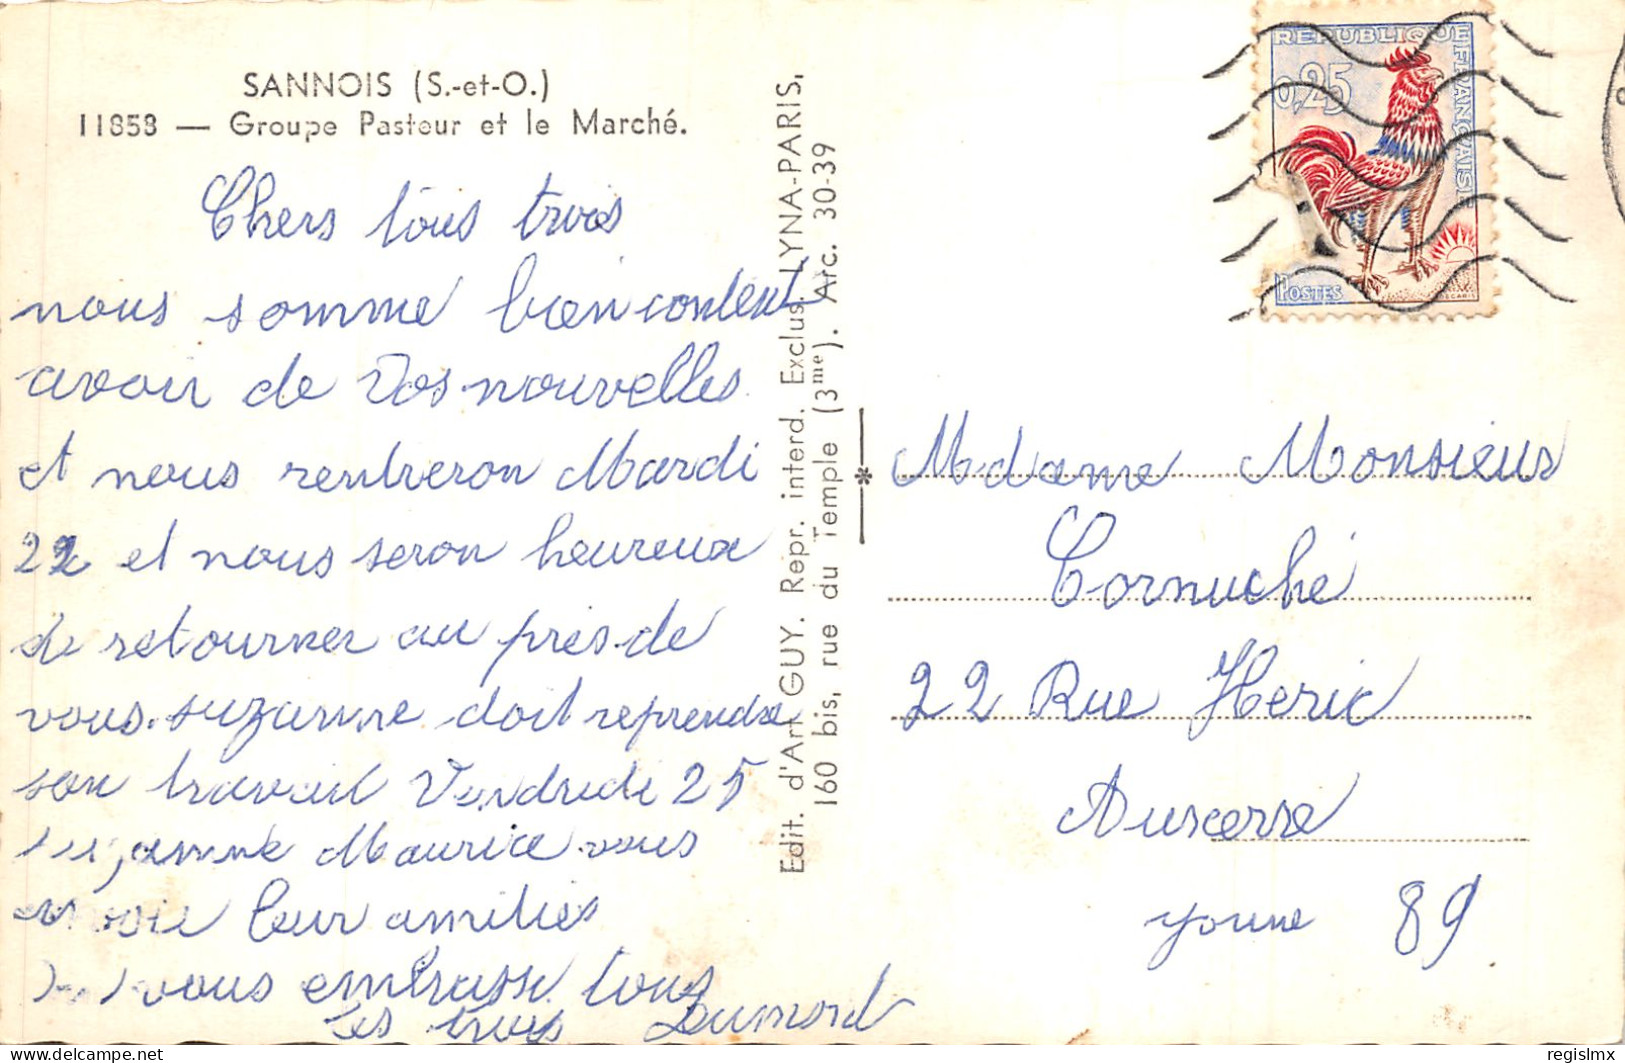 SANNOIS (S.-et-O.)
11858 — Groupe Pasteur et le Marché.
Chers tous trois
nous somme bien content
avoir de vos nouvelles
et nous rentreron Mardi
22 et nous seron heureux
de retourner au près de
vous. suzanne doit reprendre
son travail Vendredi 25
suzanne Maurice vous
envoie leur amitiés
vous embrasse tous
les trois Dumond
Edit. d'Art GUY. Repr. interd. Exclus. LYNA-PARIS,
160 bis, rue du Temple (3me). Arc. 30-39
REPUBLIQUE FRANÇAISE
0,25
POSTES
DECARIS
Mdame Monsieur
Cornuché
22 Rue Heric
Auxerre
yonne 89
delcampe.net
regislmx